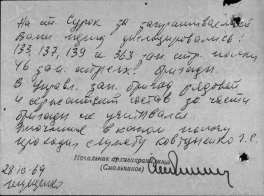 На ст. Сурок за запрашиваемый
Вами период дислоцировались:
133, 137, 139 и 363 зап. стр. полки
46 зап. стрелк. бригады.
В управл. зап. бригад рядовой
и сержантский состав за части
бригады не учитывался.
в каком полку
проходил службу Ковтуненко Г.С.
Начальник архивохранилища
(Смольников)
28.10.69